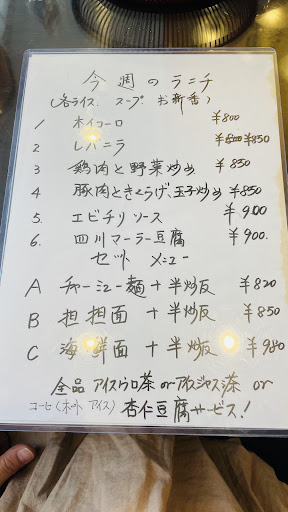 今週のランチ
(各ライス、スープ、お新香)
1 ホイコーロ ¥800
2 レバニラ ¥800 ¥850
3 鶏肉と野菜炒め ¥850
4 豚肉ときくらげ、玉子炒め ¥850
5. エビチリソース ¥900
6. 四川マーラー豆腐 ¥900.
セット メニュー
A チャーシュー麺+半炒反 ¥820
B 担担面+半炒反 ¥850
C 海鮮面+半炒反 ¥980
全品 アイスウロ茶 or アイスジャス茶 or
コーヒ(ホット アイス) 杏仁豆腐サービス!